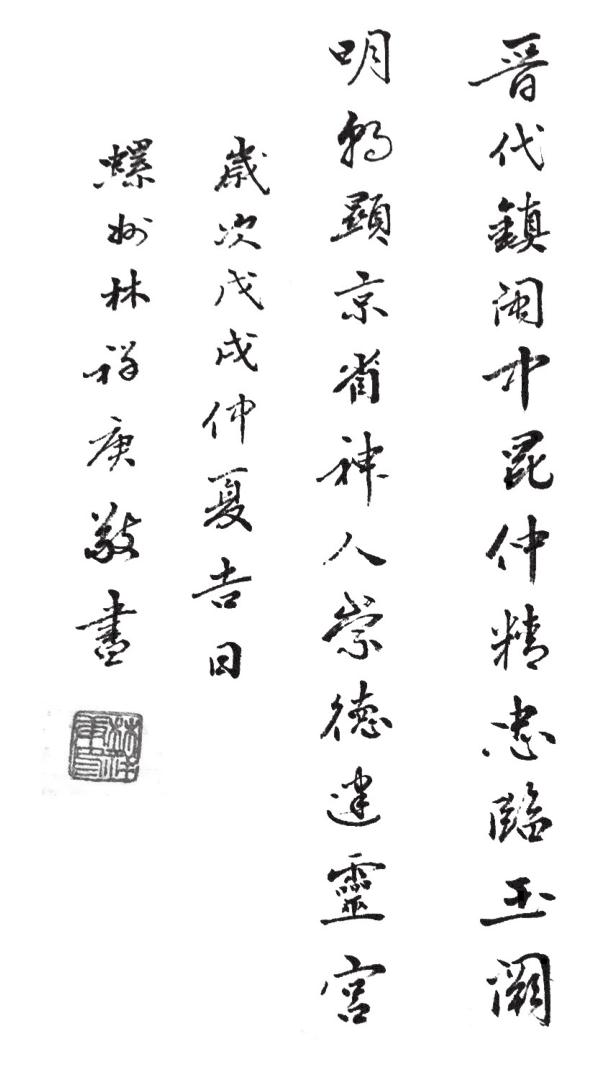 晋代鎮閩中昆仲精忠臨玉闕
明朝顯京省神人崇德建靈宮
歲次戊戌仲夏吉日
螺州林祥庚敬書
林祥庚印